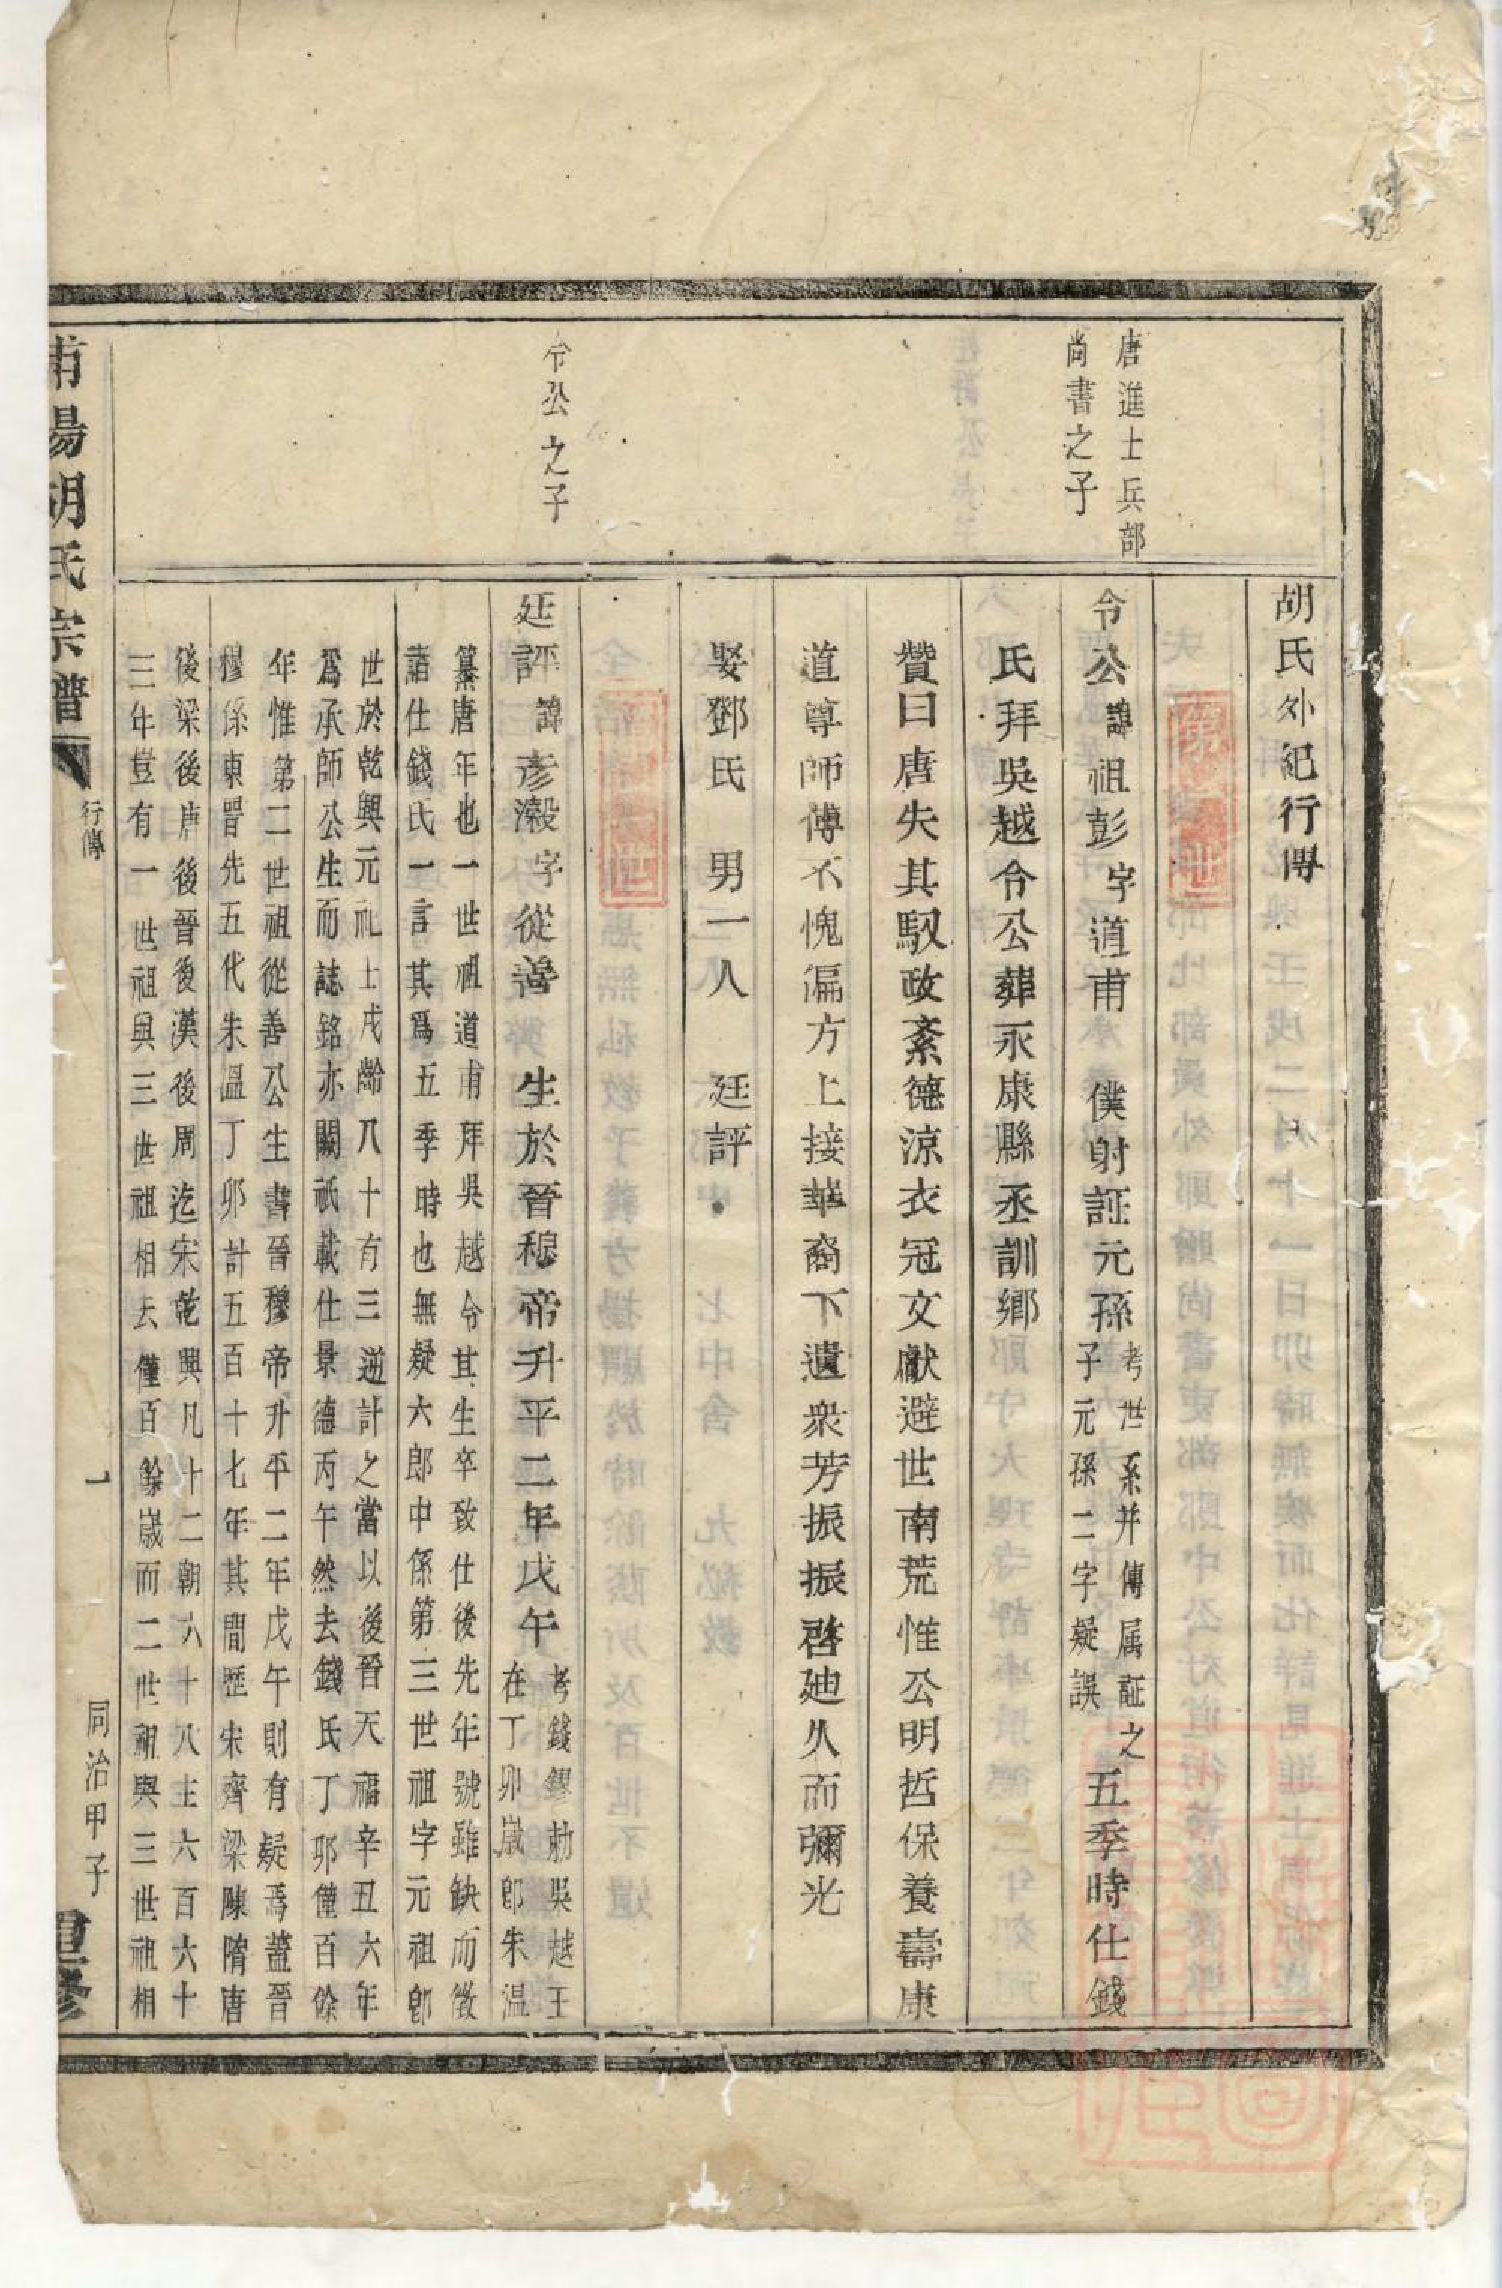 胡氏外紀行傳
唐進士兵部
尚書之子
令公諱祖彭字道甫 僕射証元孫考世系并傳属証之
子元孫二字疑誤五季時仕錢
氏拜吳越令公葬永康縣丞訓鄉
贊曰唐失其馭政紊德涼衣冠文獻避世南荒惟公明哲保養壽康
道尊師傅不愧漏方上接華裔下遺衆芳振振啓廸久而彌光
娶鄧氏 男一人 廷評
令公之子
廷評諱彥瀔字從善 生於晉穆帝升平二年戊午考錢鏐勅吳越王
在丁卯歲卽朱温
纂唐年也一世祖道甫拜吳越令其生卒致仕後先年號雖缺而徵
諸仕錢氏一言其爲五季時也無疑六郎中係第三世祖字元祖卽
世於乾興元祀土戌齡八十有三逆計之當以後晉天福辛丑六年
爲承師公生而誌銘亦闕祇載仕景德丙午然去錢氏丁卯僅百餘
年惟第二世祖從善公生書晉穆帝升平二年戊午則有疑焉蓋晉
穆係東晋先五代朱温丁卯計五百十七年其間歷宋齊梁陳隋唐
後梁後唐後晉後漢後周迄宋乾興凡十二朝六十八主六百六十
三年豈有一世祖與三世祖相去僅百餘歲而二世祖與三世祖相
胡氏宗譜
行傳
一
同治甲子
重修